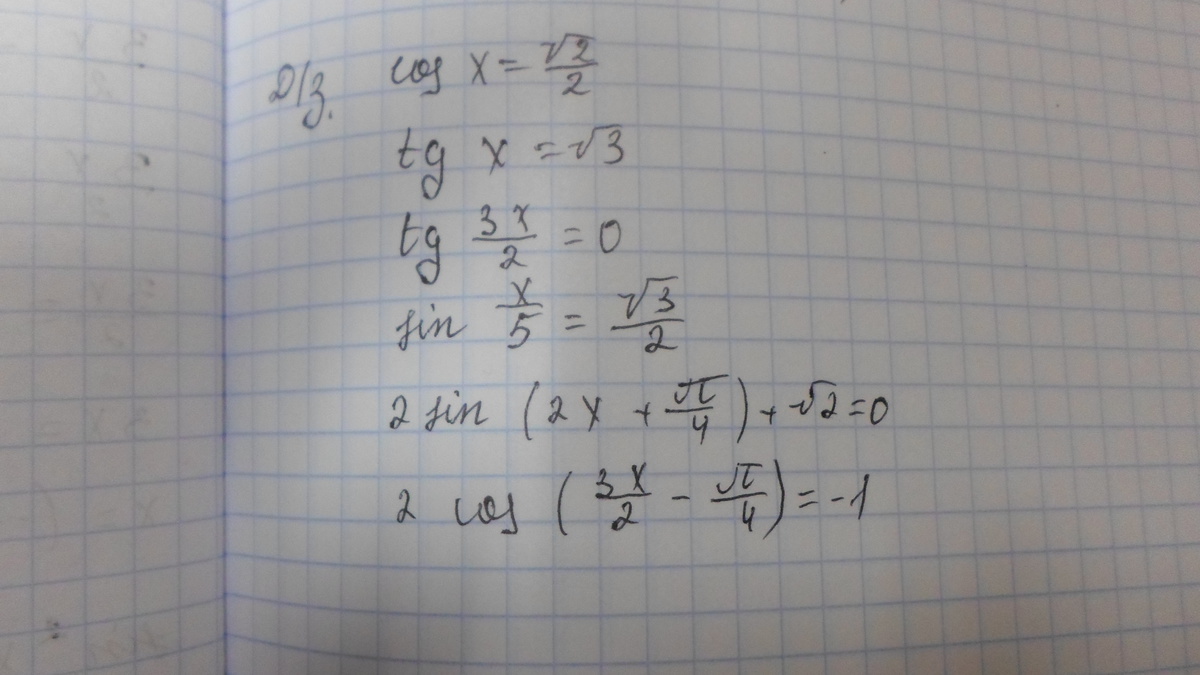 Д/з. cos x = √2/2
tg x = √3
tg 3x/2 = 0
sin x/5 = √3/2
2 sin (2x + π/4) + √2 = 0
2 cos (3x/2 - π/4) = -1